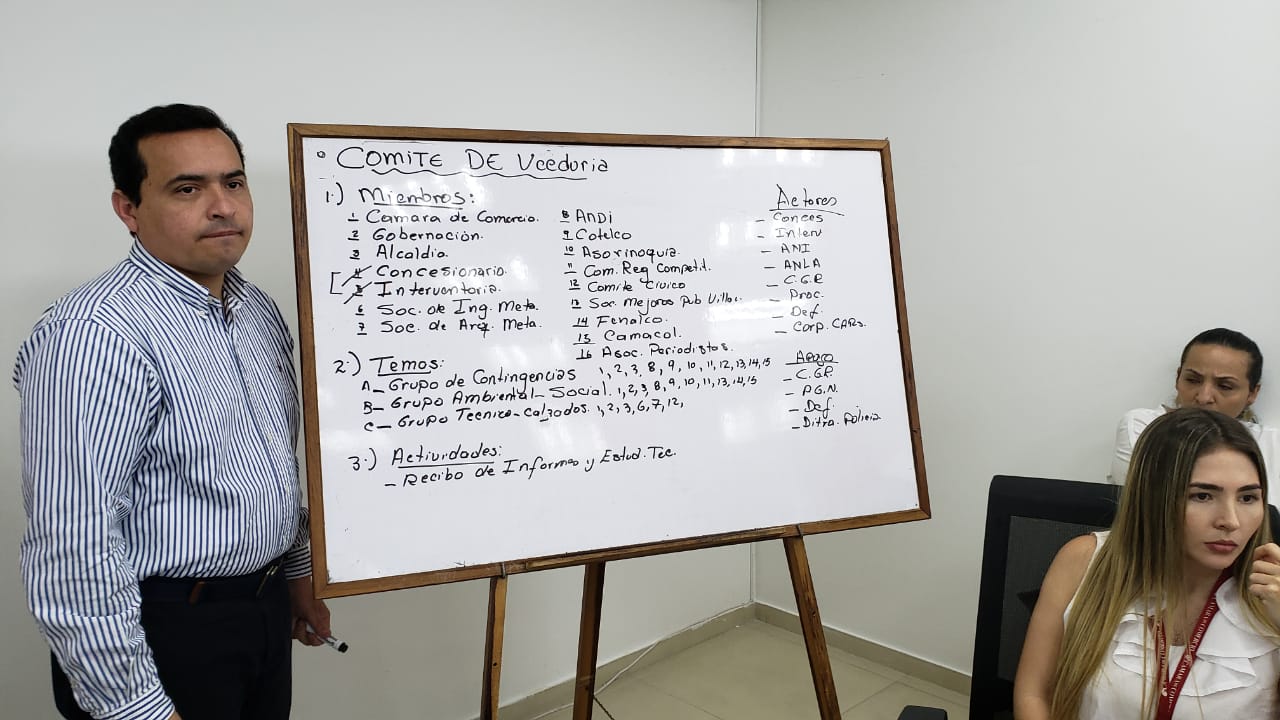 ° COMITE DE Vceduria
1.) Miembros:
1 Camara de Comercio.
2 Gobernación.
3 Alcaldia.
4 Concesionario.
5 Interventoria.
6 Soc. de Ing. Meta.
7 Soc. de Arq. Meta.
8 ANDI
9 Cotelco
10 Asorinoquia.
11 Com. Reg Competit.
12 Comite Civico
13 Soc. Mejoras Pub Villav.
14 Fenalco.
15 Camacol.
16 Asoc. Periodistas.
Actores
- Conces
- Interv
- ANI
- ANLA
- C.G.R
- Proc.
- Def.
- Corp. CARs.
2.) Temas:
A- Grupo de Contingencias 1, 2, 3, 8, 9, 10, 11, 12, 13, 14, 15
B- Grupo Ambiental-Social. 1, 2, 3 8, 9, 10, 11, 13, 14, 15
C- Grupo Tecnico-Calzadas. 1, 2, 3, 6, 7, 12,
Apoyo
- C.G.R.
- P.G.N.
- Def.
- Ditra. Policia
3.) Actividades:
- Recibo de Informes y Estud. Tec.